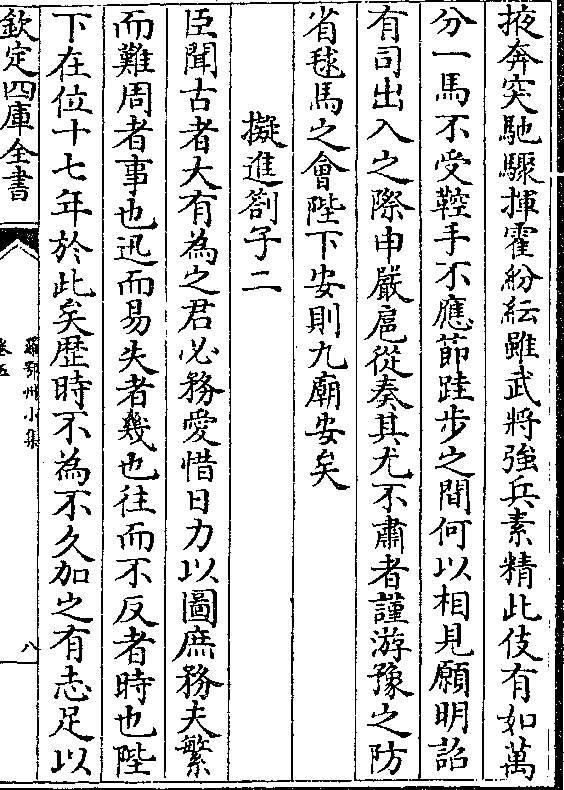 掖奔突馳驟揮霍紛紜雖武將強兵素精此伎有如萬
分一馬不受鞚手不應節跬步之間何以相見願明詔
有司出入之際申嚴扈從奏其尤不肅者謹游豫之防
省毬馬之會陛下安則九廟安矣
擬進劄子二
臣聞古者大有為之君必務愛惜日力以圖庶務夫繁
而難周者事也迅而易失者幾也往而不反者時也陛
下在位十七年於此矣歴時不為不久加之有志足以
欽定四庫全書
羅鄂州小集
卷五
八